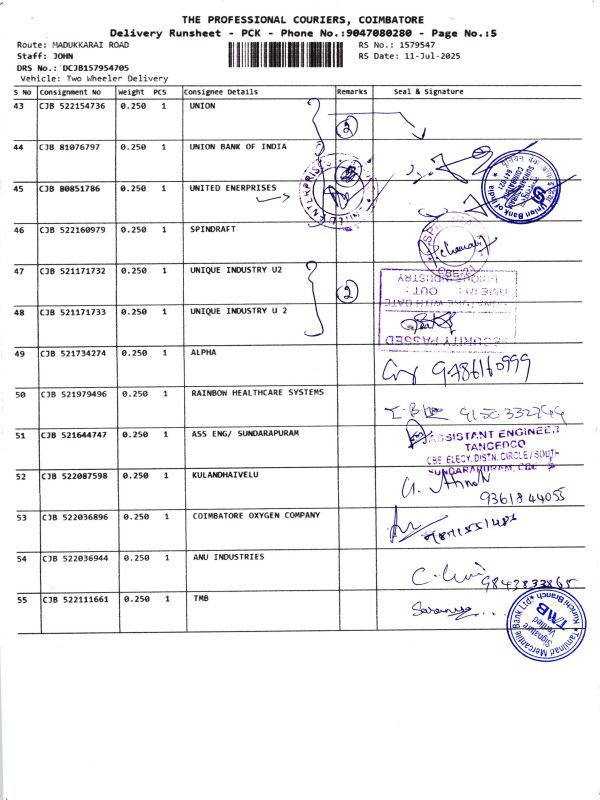 THE PROFESSIONAL COURIERS, COIMBATORE
Delivery Runsheet - PCK - Phone No.:9047080280 - Page No.:5
Route: MADUKKARAI ROAD
RS No.: 1579547
Staff: JOHN
RS Date: 11-Jul-2025
DRS No.: DCJB157954705
Vehicle: Two Wheeler Delivery
S No Consignment No Weight PCS Consignee Details Remarks Seal & Signature
43 CJB 522154736 0.250 1 UNION
2
44 CJB 81076797 0.250 1 UNION BANK OF INDIA
Union Bank of India
45 CJB 80851786 0.250 1 UNITED ENERPRISES
UNITED ENTERPRISES
46 CJB 522160979 0.250 1 SPINDRAFT
47 CJB 521171732 0.250 1 UNIQUE INDUSTRY U2
2
UNIQUE INDUSTRY
TIME IN : OUT :
SIGNATURE WITH DATE
SECURITY PASSED
48 CJB 521171733 0.250 1 UNIQUE INDUSTRY U 2
49 CJB 521734274 0.250 1 ALPHA
9786160999
50 CJB 521979496 0.250 1 RAINBOW HEALTHCARE SYSTEMS
51 CJB 521644747 0.250 1 ASS ENG/ SUNDARAPURAM
ASSISTANT ENGINEER
TANGEDCO
CBE ELECY. DISTN. CIRCLE / SOUTH
SUNDARAPURAM, CBE
52 CJB 522087598 0.250 1 KULANDHAIVELU
9361844055
53 CJB 522036896 0.250 1 COIMBATORE OXYGEN COMPANY
54 CJB 522036944 0.250 1 ANU INDUSTRIES
9843833865
55 CJB 522111661 0.250 1 TMB
Saranya
Tamilnad Mercantile Bank Ltd
Kurichi Branch
TMB
Signature
Verified